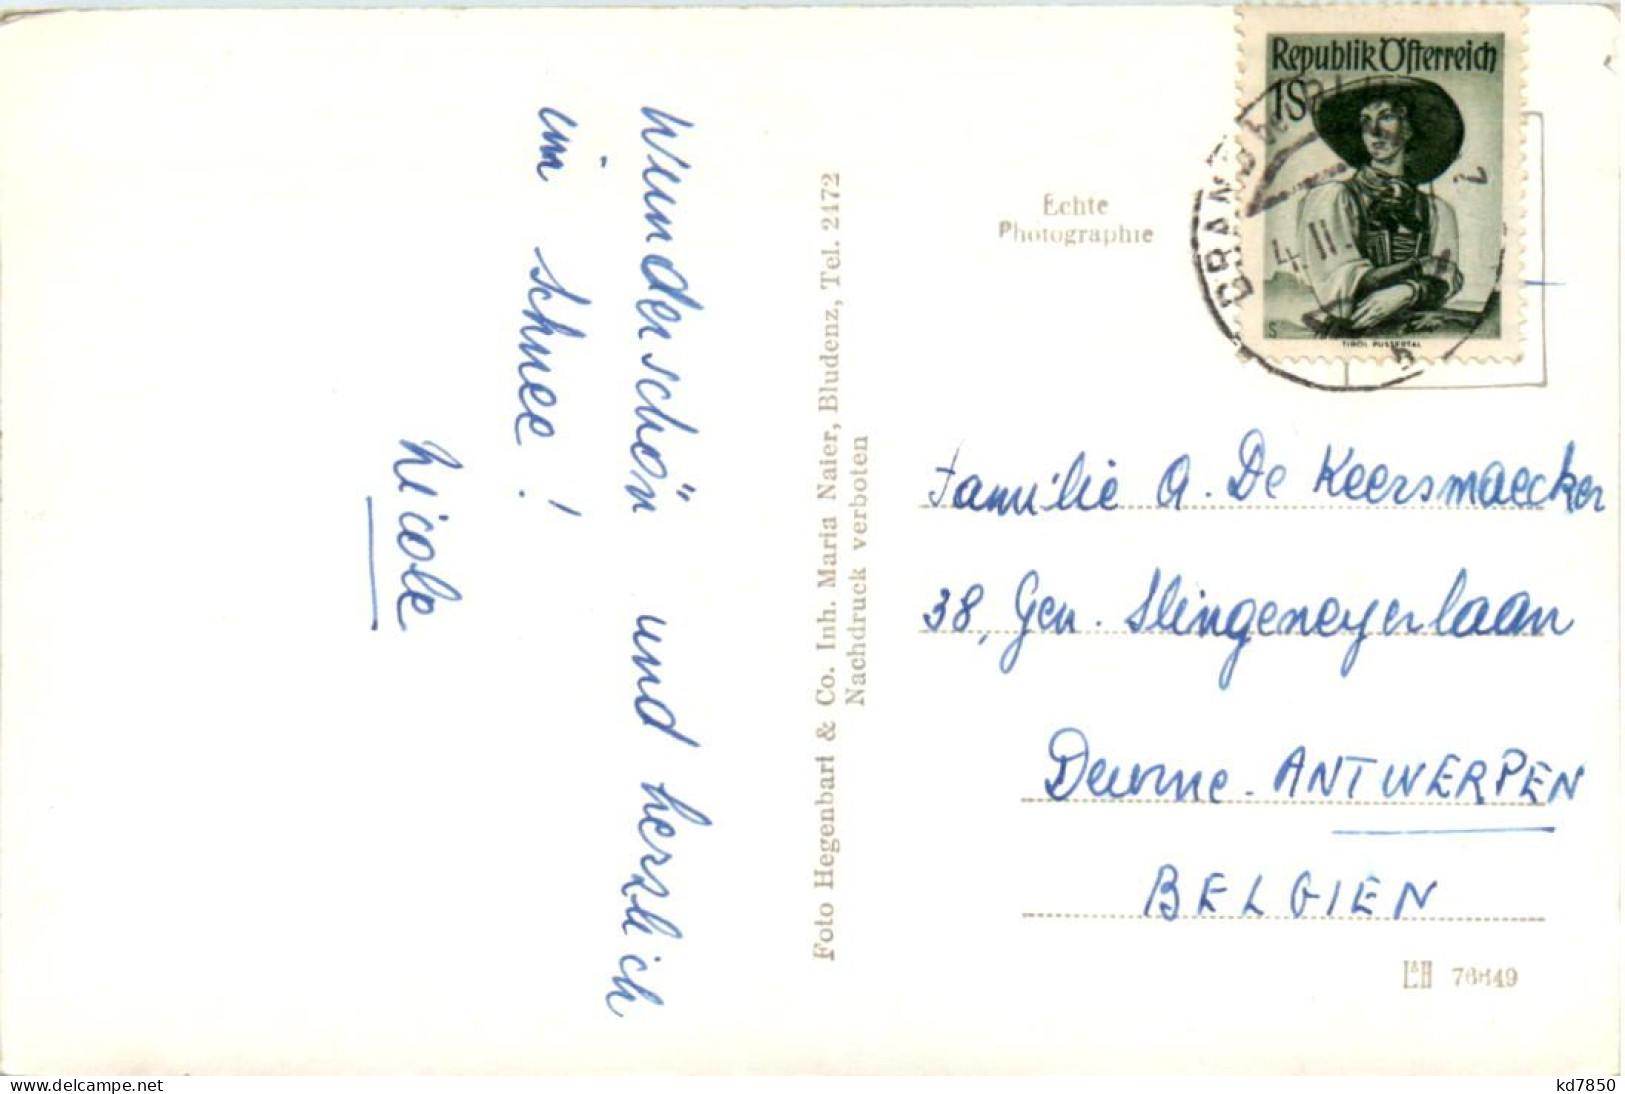 Wunderschön und herzlich
im Schnee!
Nicole
Foto Hegenbart & Co. Inh. Maria Naier, Bludenz, Tel. 2172
Nachdruck verboten
Echte
Photographie
Republik Österreich
1S
S
TIROL PUSTERTAL
BRAND
4. II
Familie A. De Keersmaecker
38, Gen. Slingeneyerlaan
Deurne - ANTWERPEN
BELGIEN
76649
delcampe.net
kd7850